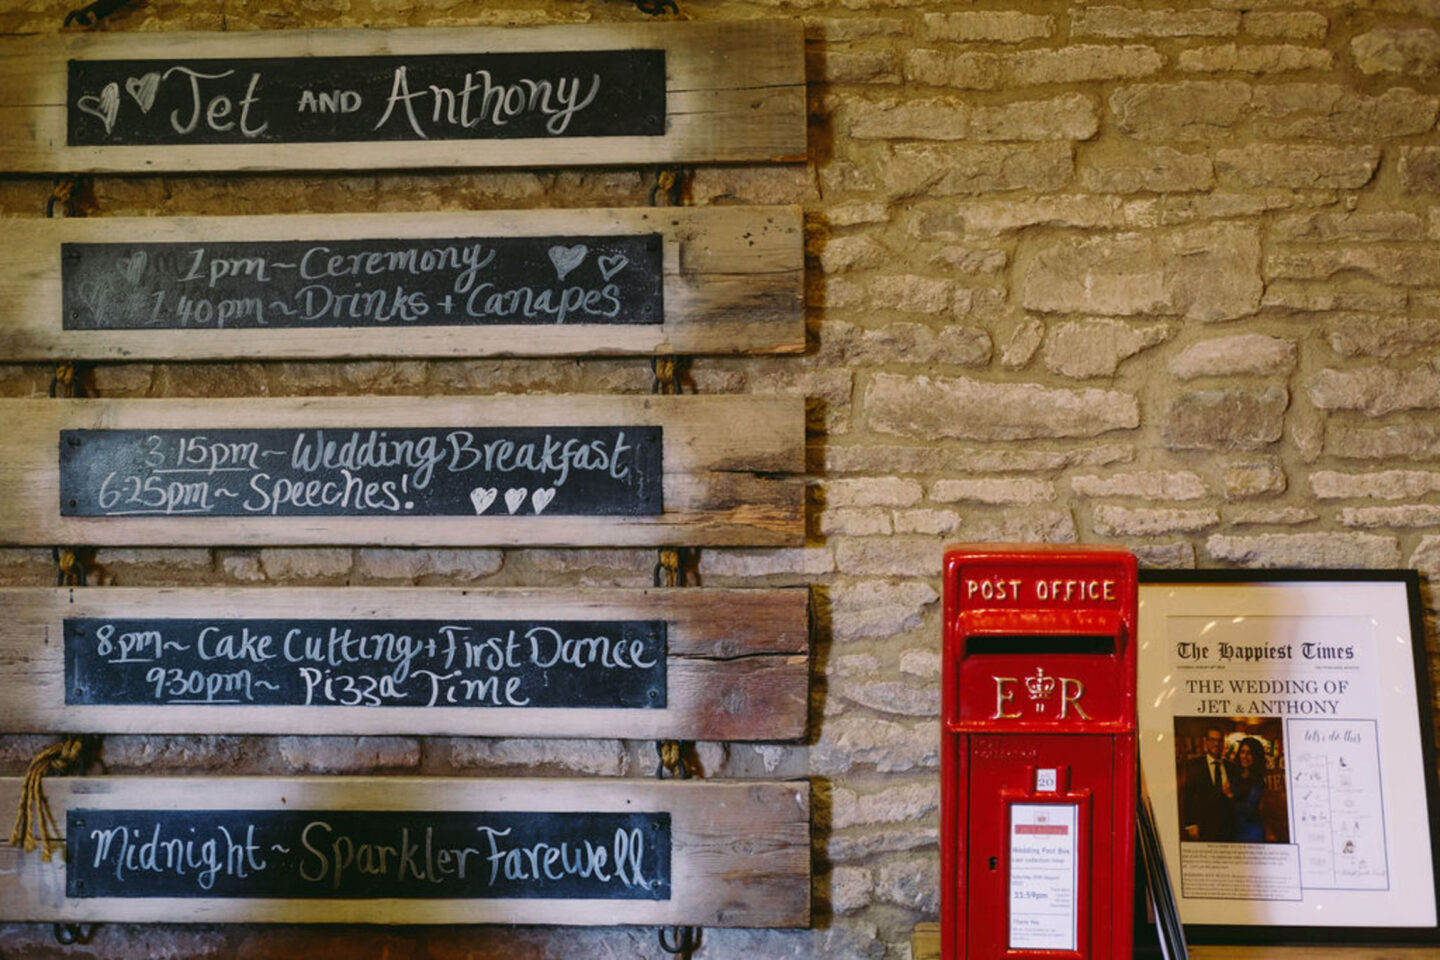 Jet AND Anthony
1pm ~ Ceremony
1.40pm ~ Drinks + Canapes
3.15pm ~ Wedding Breakfast
6.25pm ~ Speeches!
8pm ~ Cake Cutting + First Dance
930pm ~ Pizza Time
Midnight ~ Sparkler Farewell
POST OFFICE
E II R
20
Wedding Post Box
Last collection time
11:59pm
Thank You
The Happiest Times
THE WEDDING OF
JET & ANTHONY
let's do this